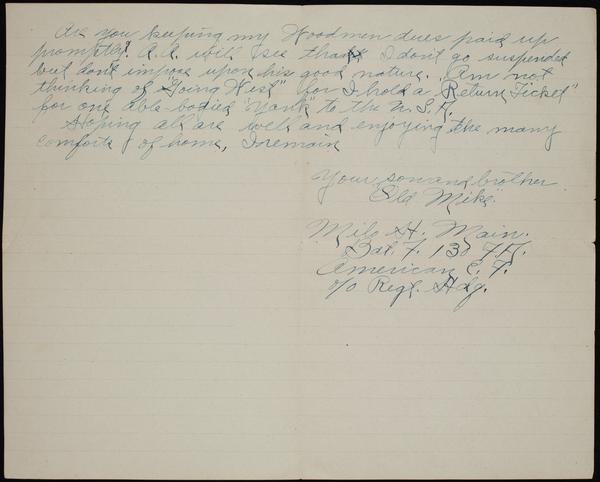 Are you keeping my Woodmen dues paid up
promptly? A.A. will see that I don't go suspended
but don't impose upon his good nature. Am not
thinking of "Going West" for I hold a "Return Ticket"
for one able bodied "Yank" to the U.S.A.
Hoping all are well and enjoying the many
comforts of home, I remain
Your son and brother
"Old Mike".
Milo H. Main.
Bat. F. 130 F.A.
American E. F.
c/o Regt. Hdq.